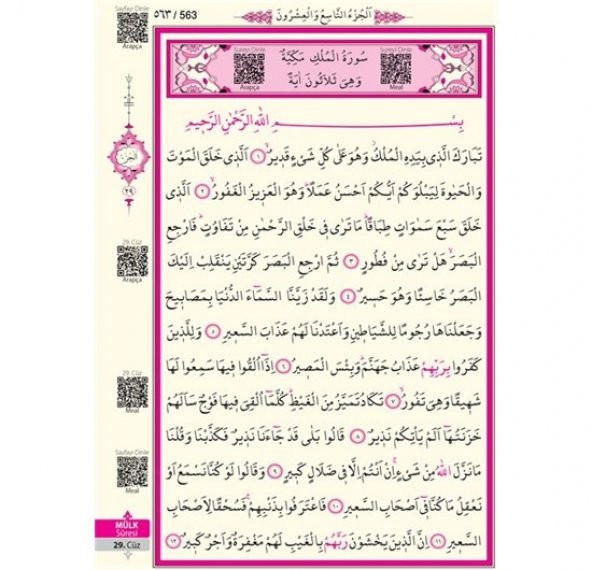 ٥٦٣ / 563
اَلْجُزْءُ التَّاسِعُ وَالْعِشْرُونَ
Sayfayı Dinle
Arapça
Sureyi Dinle
Arapça
سُورَةُ الْمُلْكِ مَكِّيَّةٌ
وَهِيَ ثَلَاثُونَ اٰيَةً
Sureyi Dinle
Meal
بِسْمِ اللّٰهِ الرَّحْمٰنِ الرَّحٖيمِ
تَبَارَكَ الَّذٖي بِيَدِهِ الْمُلْكُ وَهُوَ عَلٰى كُلِّ شَيْءٍ قَدٖيرٌۙ ﴿١﴾ اَلَّذٖي خَلَقَ الْمَوْتَ
وَالْحَيٰوةَ لِيَبْلُوَكُمْ اَيُّكُمْ اَحْسَنُ عَمَلًاۜ وَهُوَ الْعَزٖيزُ الْغَفُورُۙ ﴿٢﴾ اَلَّذٖي
خَلَقَ سَبْعَ سَمٰوَاتٍ طِبَاقًاۜ مَا تَرٰى فٖي خَلْقِ الرَّحْمٰنِ مِنْ تَفَاوُتٍۜ فَارْجِعِ
الْبَصَرَۙ هَلْ تَرٰى مِنْ فُطُورٍ ﴿٣﴾ ثُمَّ ارْجِعِ الْبَصَرَ كَرَّتَيْنِ يَنْقَلِبْ اِلَيْكَ
الْبَصَرُ خَاسِئًا وَهُوَ حَسٖيرٌ ﴿٤﴾ وَلَقَدْ زَيَّنَّا السَّمَاءَ الدُّنْيَا بِمَصَابٖيحَ
وَجَعَلْنَاهَا رُجُومًا لِلشَّيَاطٖينِ وَاَعْتَدْنَا لَهُمْ عَذَابَ السَّعٖيرِ ﴿٥﴾ وَلِلَّذٖينَ
كَفَرُوا بِرَبِّهِمْ عَذَابُ جَهَنَّمَۜ وَبِئْسَ الْمَصٖيرُ ﴿٦﴾ اِذَٓا اُلْقُوا فٖيهَا سَمِعُوا لَهَا
شَهٖيقًا وَهِيَ تَفُورُۙ ﴿٧﴾ تَكَادُ تَمَيَّزُ مِنَ الْغَيْظِۜ كُلَّمَٓا اُلْقِيَ فٖيهَا فَوْجٌ سَاَلَهُمْ
خَزَنَتُهَٓا اَلَمْ يَأْتِكُمْ نَذٖيرٌ ﴿٨﴾ قَالُوا بَلٰى قَدْ جَاءَنَا نَذٖيرٌ فَكَذَّبْنَا وَقُلْنَا
مَا نَزَّلَ اللّٰهُ مِنْ شَيْءٍۚ اِنْ اَنْتُمْ اِلَّا فٖي ضَلَالٍ كَبٖيرٍ ﴿٩﴾ وَقَالُوا لَوْ كُنَّا نَسْمَعُ اَوْ
نَعْقِلُ مَا كُنَّا فٖٓي اَصْحَابِ السَّعٖيرِ ﴿١٠﴾ فَاعْتَرَفُوا بِذَنْبِهِمْۚ فَسُحْقًا لِاَصْحَابِ
السَّعٖيرِ ﴿١١﴾ اِنَّ الَّذٖينَ يَخْشَوْنَ رَبَّهُمْ بِالْغَيْبِ لَهُمْ مَغْفِرَةٌ وَاَجْرٌ كَبٖيرٌ ﴿١٢﴾
الجزء
٢٩
29. Cüz
Arapça
29. Cüz
Meal
Sayfayı Dinle
Meal
MÜLK
Sûresi
29. Cüz